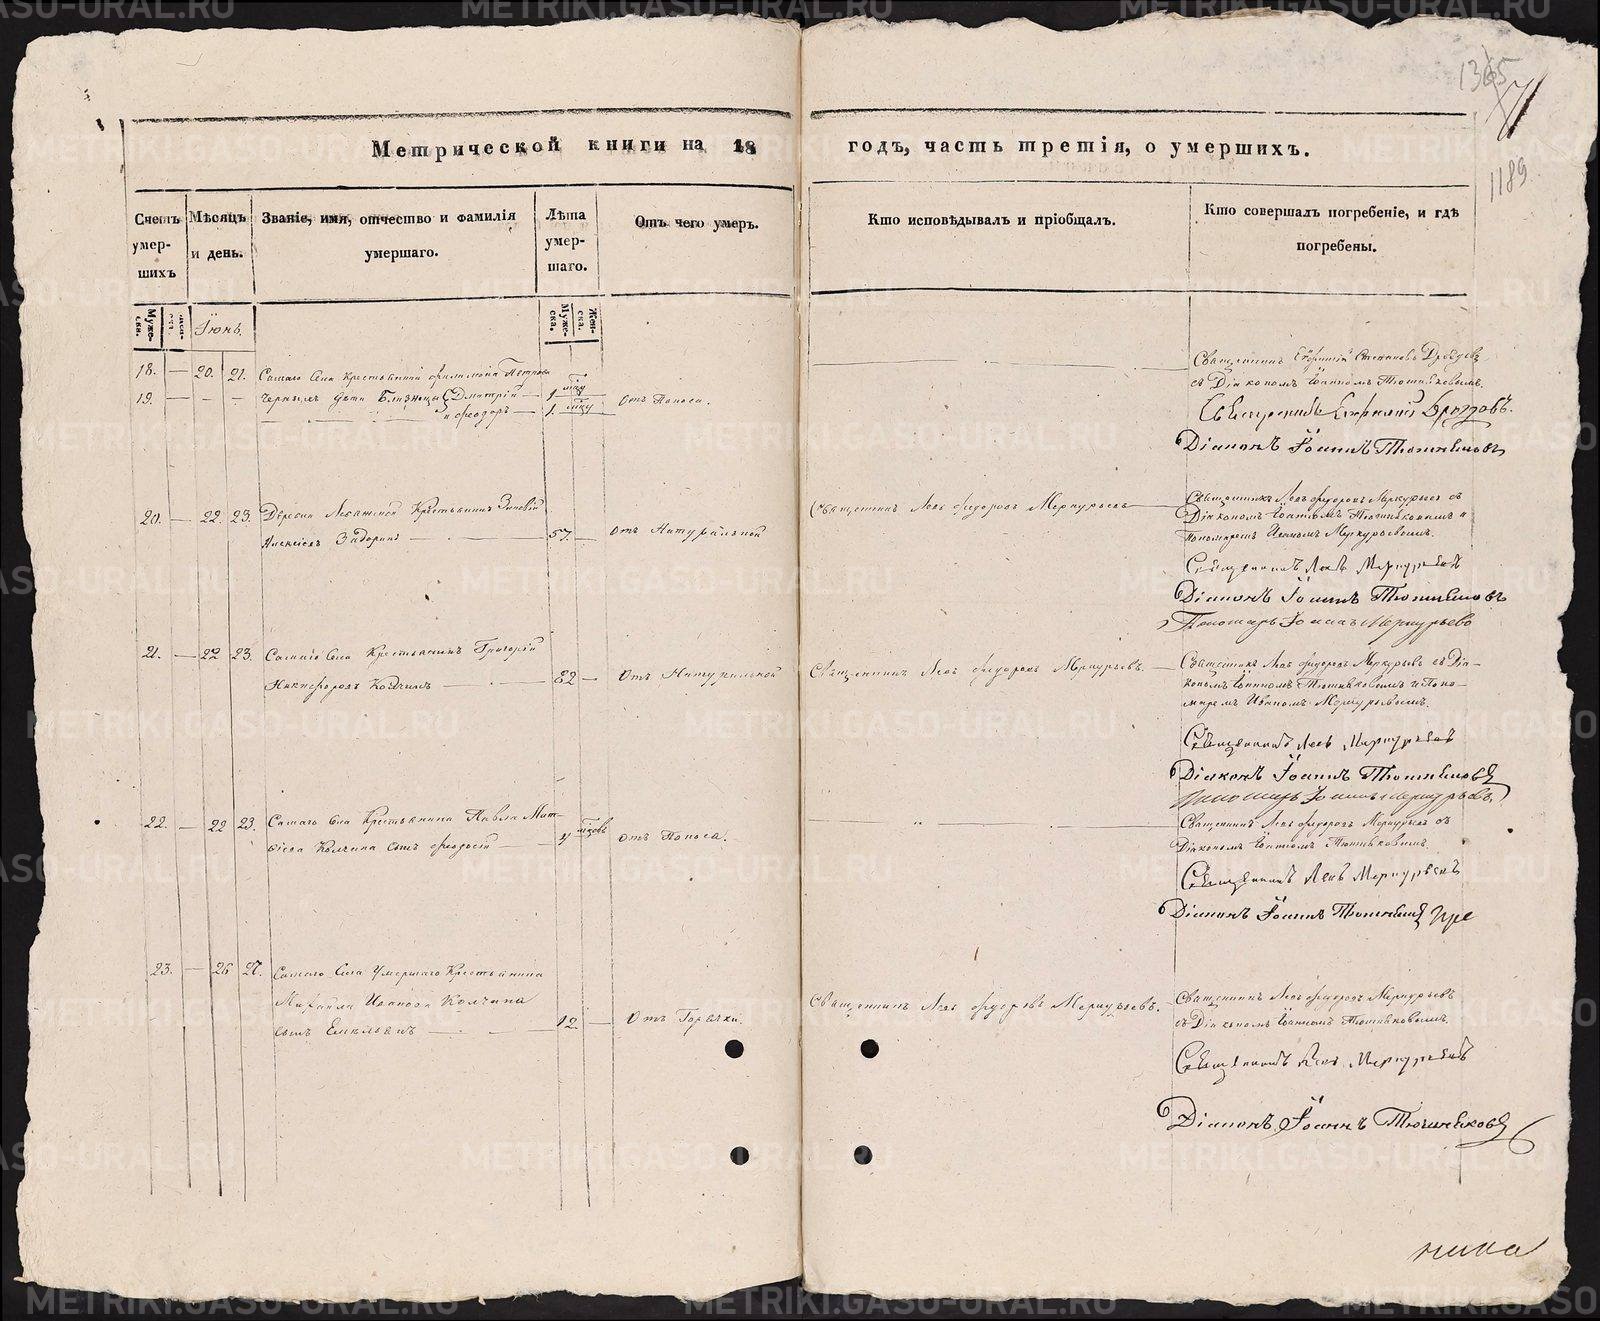 1365
71
1189
Метрической книги на 18 годъ, часть третія, о умершихъ.
Счетъ умер- шихъ
Мѣсяцъ и день.
Званіе, имя, отчество и фамилія умершаго.
Лѣта умер- шаго.
Отъ чего умеръ.
Кто исповѣдывалъ и пріобщалъ.
Кто совершалъ погребеніе, и гдѣ погребены.
Муже- ска.
Жен- ска.
Іюнь.
Муже- ска.
Жен- ска.
18. — 20. 21. Самаго Села Крестьянина Филимона Петрова
19. — — — дѣти Близнецы Дмитрій — 1 мцу
и Феодоръ — 1. мцу Отъ Поноса.
Священникъ Степановъ
съ Діакономъ Іоанномъ Тютниковымъ.
Діаконъ Іоаннъ Тютниковъ
20. — 22. 23. Деревни Крестьянинъ Зиновій
Алексѣевъ Задоринъ — 57. — Отъ Натуральной
Священникъ Левъ Федоровъ Меркурьевъ
Священникъ Левъ Федоровъ Меркурьевъ съ
Діакономъ Іоанномъ Тютниковымъ и
Пономаремъ Иваномъ Меркурьевымъ.
Священникъ Левъ Меркурьевъ
Діаконъ Іоаннъ Тютниковъ
Пономарь Иванъ Меркурьевъ
21. — 22 23. Самаго Села Крестьянинъ Григорій
Никифоровъ Колчинъ — 82 — Отъ Натуральной
Священникъ Левъ Федоровъ Меркурьевъ. —
Священникъ Левъ Федоровъ Меркурьевъ съ Діа-
кономъ Іоанномъ Тютниковымъ и Поно-
маремъ Иваномъ Меркурьевымъ.
Священникъ Левъ Меркурьевъ
Діаконъ Іоаннъ Тютниковъ
Пономарь Иванъ Меркурьевъ
22. — 22 23. Самаго Села Крестьянина Павла Мат-
ѳіева Колчина сынъ Феодосій — мцовъ Отъ Поноса.
Священникъ Левъ Федоровъ Меркурьевъ съ
Діакономъ Іоанномъ Тютниковымъ.
Священникъ Левъ Меркурьевъ
Діаконъ Іоаннъ Тютниковъ
23. — 26 27. Самаго Села Умершаго Крестьянина
Михаила Иванова Колчина
сынъ Емельянъ — 12. — Отъ Горячки
Священникъ Левъ Федоровъ Меркурьевъ.
Священникъ Левъ Федоровъ Меркурьевъ
съ Діакономъ Іоанномъ Тютниковымъ.
Священникъ Левъ Меркурьевъ
Діаконъ Іоаннъ Тютниковъ
METRIKI.GASO-URAL.RU